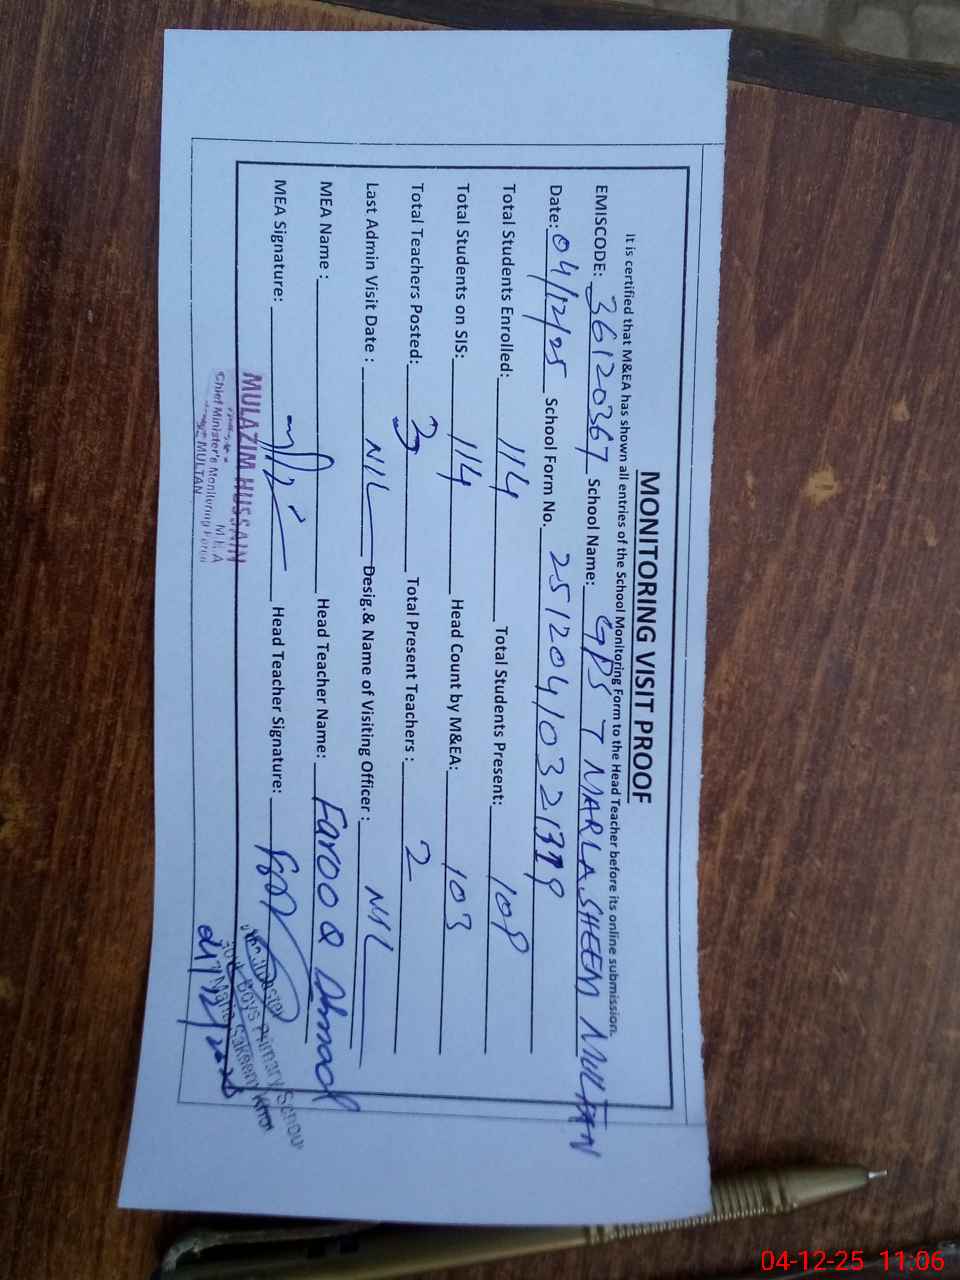 MONITORING VISIT PROOF
It is certified that M&EA has shown all entries of the School Monitoring Form to the Head Teacher before its online submission.
EMISCODE: 36120367 School Name: GPS 7 MARLA SHEEM MULTAN
Date: 04/12/25 School Form No. 2512041032
Total Students Enrolled: 114 Total Students Present: 108
Total Students on SIS: 114 Head Count by M&EA: 103
Total Teachers Posted: 3 Total Present Teachers: 2
Last Admin Visit Date: NIL Desig.& Name of Visiting Officer: NIL
MEA Name: Head Teacher Name: Farooq Ahmad
MEA Signature: Head Teacher Signature:
MULAZIM HUSSAIN
M.E.A
Chief Minister's Monitoring Force
MULTAN
Boys Primary
04/12/2025
04-12-25 11:06